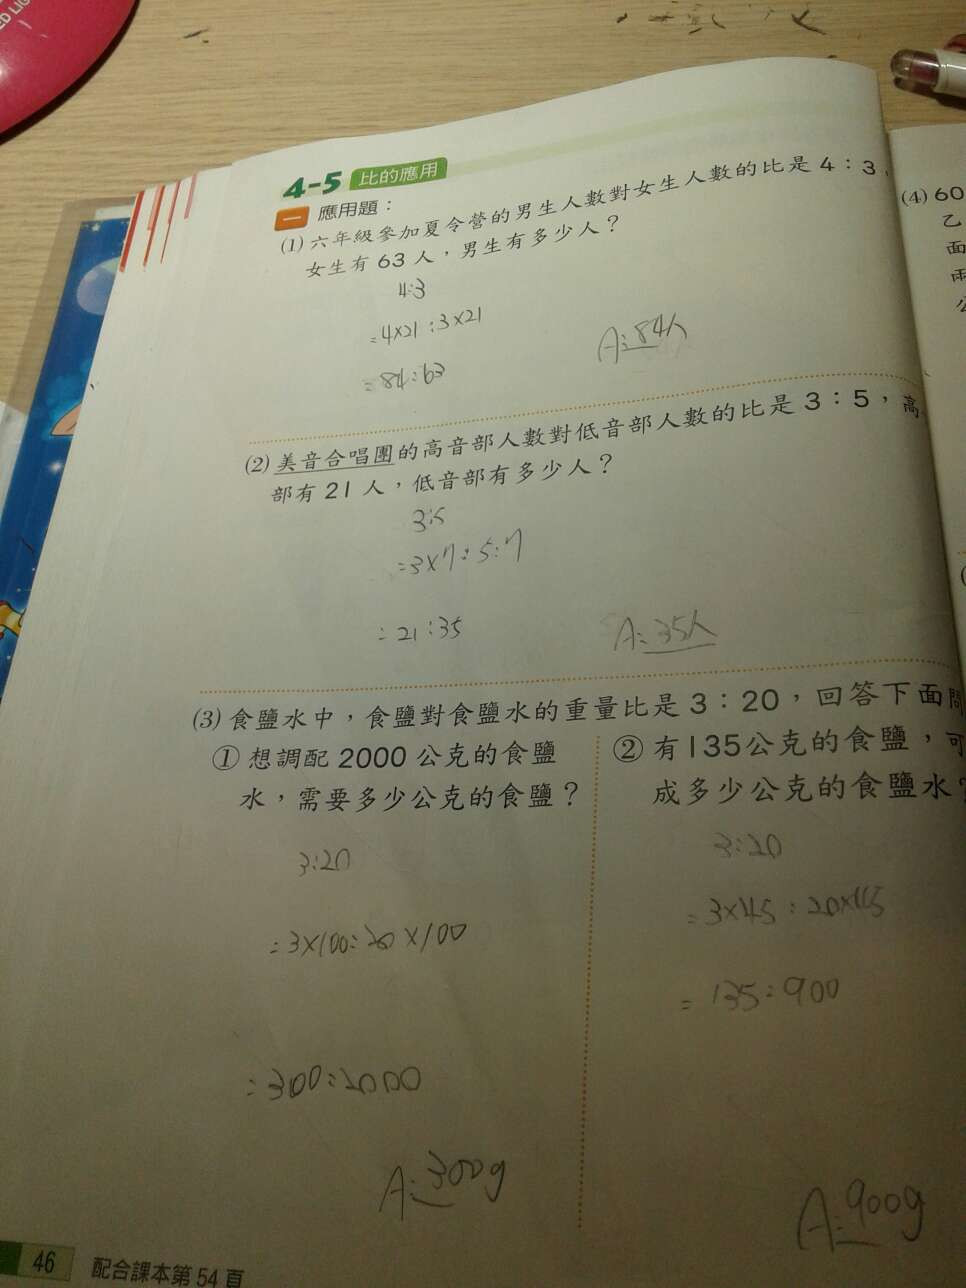 4-5 比的應用
一 應用題：
(1) 六年級參加夏令營的男生人數對女生人數的比是 4：3，
女生有 63 人，男生有多少人？
4:3
=4×21:3×21
=84:63
A:84人
(2) 美音合唱團的高音部人數對低音部人數的比是 3：5，高
部有 21 人，低音部有多少人？
3:5
=3×7:5:7
=21:35
A:35人
(3) 食鹽水中，食鹽對食鹽水的重量比是 3：20，回答下面問
① 想調配 2000 公克的食鹽
水，需要多少公克的食鹽？
3:20
=3×100:20×100
=300:2000
A:300g
② 有135公克的食鹽，可
成多少公克的食鹽水？
3:20
=3×45:20×45
=135:900
A:900g
46 配合課本第 54 頁
(4) 60
乙
面
兩